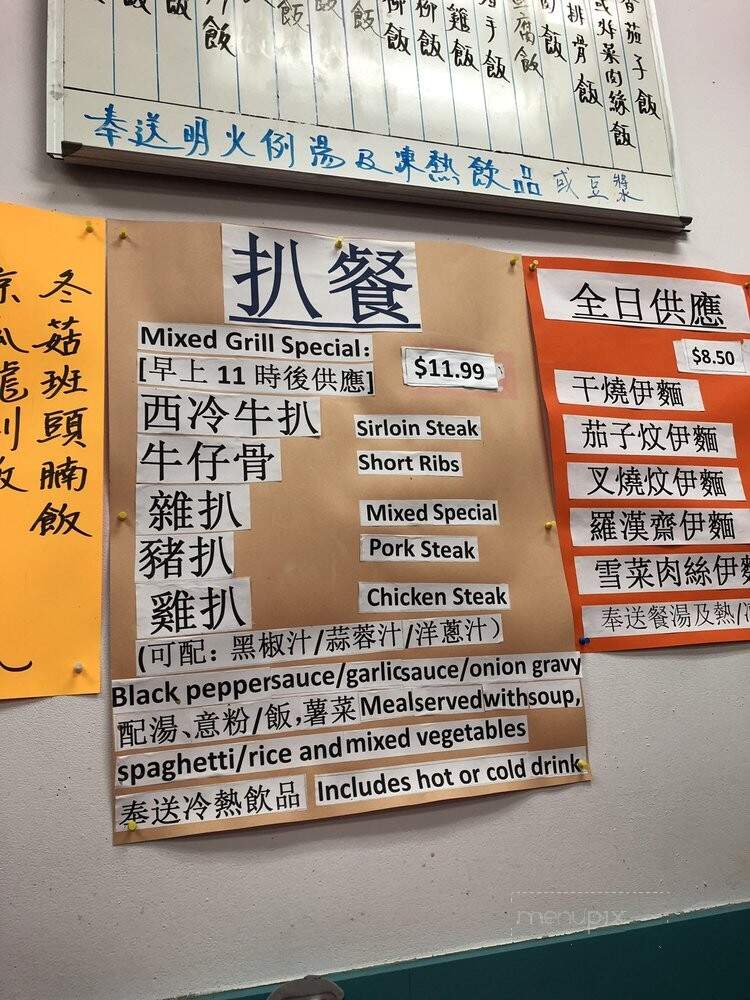 飯
飯
飯
飯
柳飯
柳飯
雞飯
手飯
豆腐飯
肉飯
排骨飯
或炸菜肉絲飯
番茄子飯
奉送明火例湯及凍熱飲品或豆漿
冬菇班頭腩飯
扒餐
Mixed Grill Special:
$11.99
[早上 11 時後供應]
西冷牛扒 Sirloin Steak
牛仔骨 Short Ribs
雜扒 Mixed Special
豬扒 Pork Steak
雞扒 Chicken Steak
(可配: 黑椒汁/蒜蓉汁/洋蔥汁)
Black peppersauce/garlicsauce/onion gravy
配湯、意粉/飯,薯菜 Mealservedwithsoup,
spaghetti/rice and mixed vegetables
奉送冷熱飲品 Includes hot or cold drink
全日供應
$8.50
干燒伊麵
茄子炆伊麵
叉燒炆伊麵
羅漢齋伊麵
雪菜肉絲伊麵
奉送餐湯及熱/
menupix